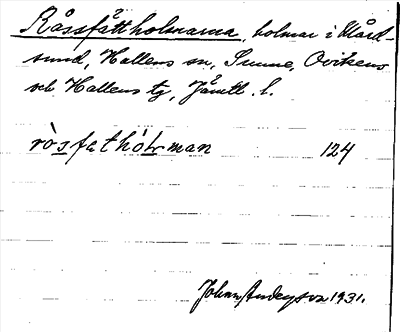 Råssfåttholmarna, holmar i Vård-
sund, Hallens sn, Sunne, Ovikens
och Hallens tg, Jämtl. l.
ròsfathòlman 124
Johan Anderson 1931.